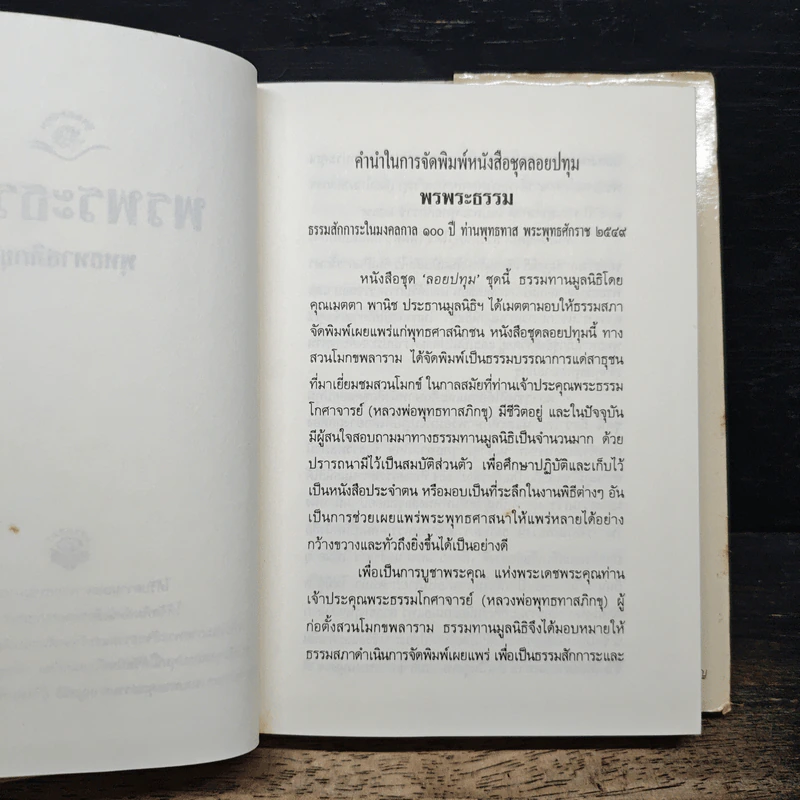 คำนำในการจัดพิมพ์หนังสือชุดลอยปทุม
พรพระธรรม
ธรรมสักการะในมงคลกาล ๑๐๐ ปี ท่านพุทธทาส พระพุทธศักราช ๒๕๔๙
หนังสือชุด ‘ลอยปทุม’ ชุดนี้ ธรรมทานมูลนิธิโดย
คุณเมตตา พานิช ประธานมูลนิธิฯ ได้เมตตามอบให้ธรรมสภา
จัดพิมพ์เผยแพร่แก่พุทธศาสนิกชน หนังสือชุดลอยปทุมนี้ ทาง
สวนโมกขพลาราม ได้จัดพิมพ์เป็นธรรมบรรณาการแด่สาธุชน
ที่มาเยี่ยมชมสวนโมกข์ ในกาลสมัยที่ท่านเจ้าประคุณพระธรรม
โกศาจารย์ (หลวงพ่อพุทธทาสภิกขุ) มีชีวิตอยู่ และในปัจจุบัน
มีผู้สนใจสอบถามมาทางธรรมทานมูลนิธิเป็นจำนวนมาก ด้วย
ปรารถนามีไว้เป็นสมบัติส่วนตัว เพื่อศึกษาปฏิบัติและเก็บไว้
เป็นหนังสือประจำตน หรือมอบเป็นที่ระลึกในงานพิธีต่างๆ อัน
เป็นการช่วยเผยแพร่พระพุทธศาสนาให้แพร่หลายได้อย่าง
กว้างขวางและทั่วถึงยิ่งขึ้นได้เป็นอย่างดี
เพื่อเป็นการบูชาพระคุณ แห่งพระเดชพระคุณท่าน
เจ้าประคุณพระธรรมโกศาจารย์ (หลวงพ่อพุทธทาสภิกขุ) ผู้
ก่อตั้งสวนโมกขพลาราม ธรรมทานมูลนิธิจึงได้มอบหมายให้
ธรรมสภาดำเนินการจัดพิมพ์เผยแพร่ เพื่อเป็นธรรมสักการะและ